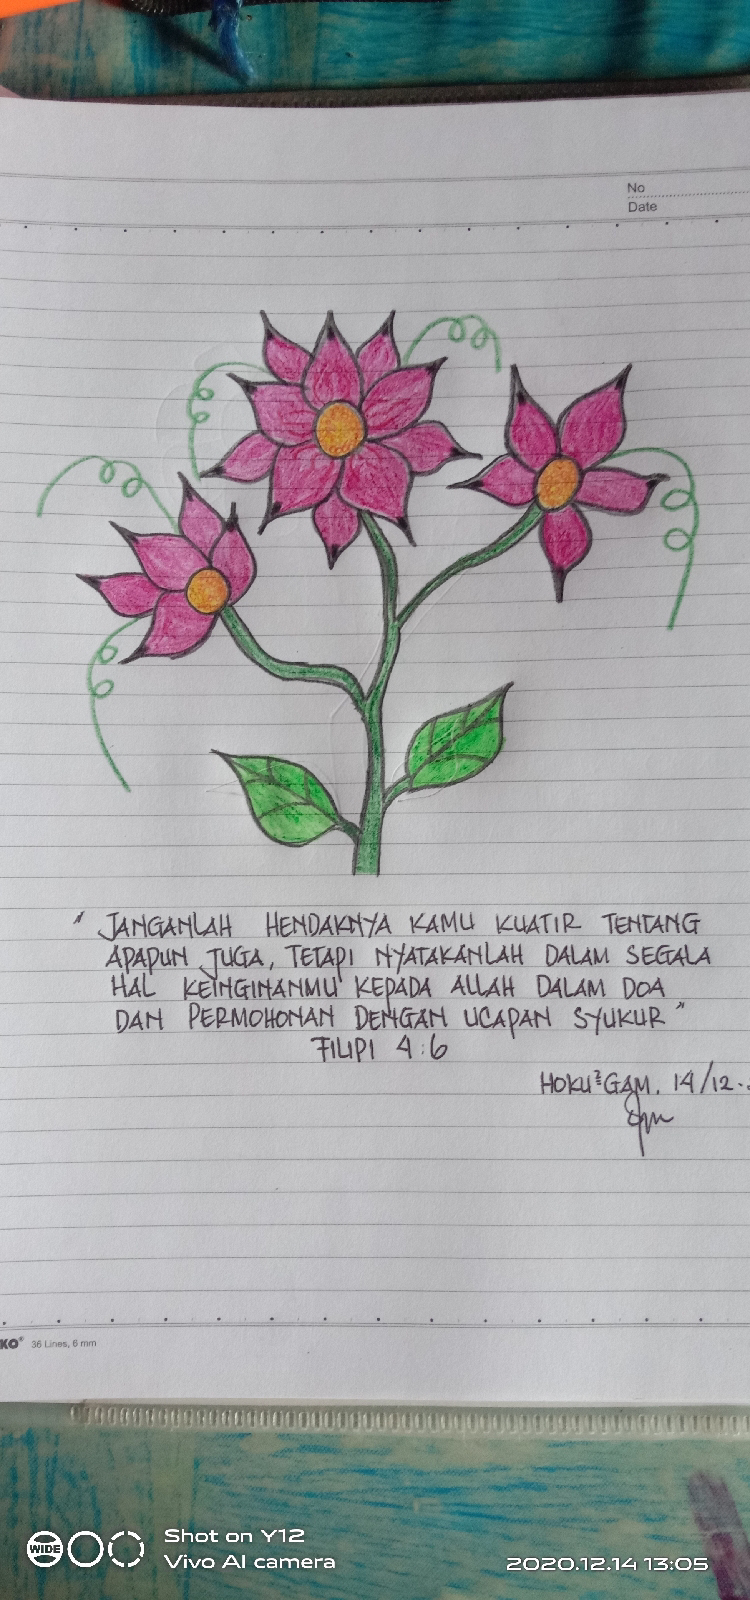 No
Date
" JANGANLAH HENDAKNYA KAMU KUATIR TENTANG
APAPUN JUGA, TETAPI NYATAKANLAH DALAM SEGALA
HAL KEINGINANMU KEPADA ALLAH DALAM DOA
DAN PERMOHONAN DENGAN UCAPAN SYUKUR "
FILIPI 4:6
HOKU² GAM. 14/12.
KO® 36 Lines, 6 mm
WIDE
Shot on Y12
Vivo AI camera
2020.12.14 13:05